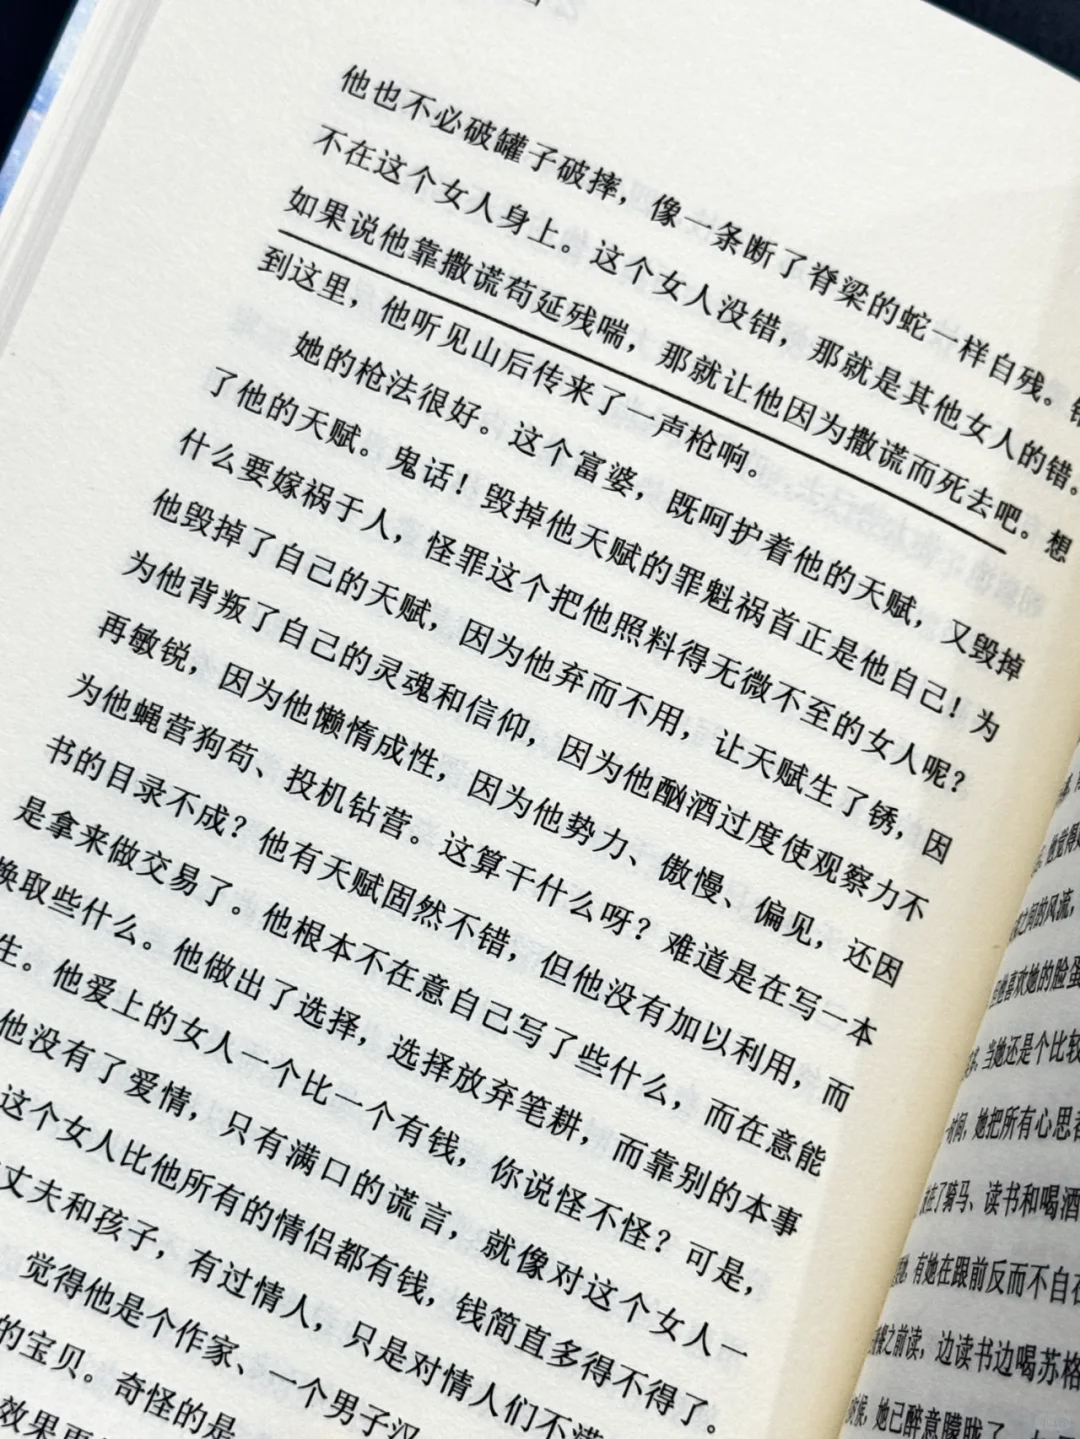 他也不必破罐子破摔，像一条断了脊梁的蛇一样自残。错
不在这个女人身上。这个女人没错，那就是其他女人的错。
如果说他靠撒谎苟延残喘，那就让他因为撒谎而死去吧。想
到这里，他听见山后传来了一声枪响。
她的枪法很好。这个富婆，既呵护着他的天赋，又毁掉
了他的天赋。鬼话！毁掉他天赋的罪魁祸首正是他自己！为
什么要嫁祸于人，怪罪这个把他照料得无微不至的女人呢？
他毁掉了自己的天赋，因为他弃而不用，让天赋生了锈，因
为他背叛了自己的灵魂和信仰，因为他酗酒过度使观察力不
再敏锐，因为他懒惰成性，因为他势力、傲慢、偏见，还因
为他蝇营狗苟、投机钻营。这算干什么呀？难道是在写一本
书的目录不成？他有天赋固然不错，但他没有加以利用，而
是拿来做交易了。他根本不在意自己写了些什么，而在意能
换取些什么。他做出了选择，选择放弃笔耕，而靠别的本事
生。他爱上的女人一个比一个有钱，你说怪不怪？可是，
他没有了爱情，只有满口的谎言，就像对这个女人一
这个女人比他所有的情侣都有钱，钱简直多得不得了。
丈夫和孩子，有过情人，只是对情人们不满
觉得他是个作家、一个男子汉
的宝贝。奇怪的是
效果更
他觉得
之间的风流，
喜欢她的脸蛋
当她还是个比较
时间，她把所有心思
了骑马、读书和喝酒
有她在跟前反而不自在
餐之前读，边读书边喝苏格
候，她已醉意朦胧了